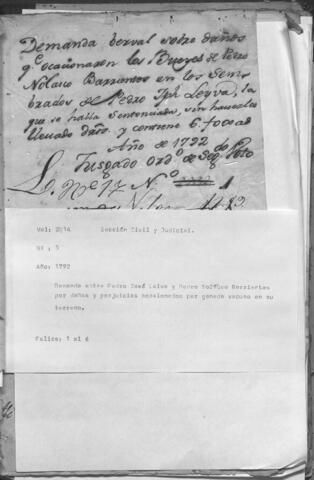 Demanda berval sobre daños
q.e ocacionaron los Bueyes de Pedro
Nolaco Barrientos en los Sem
brados de Pedro Jph Leyva, la
que se halla Sentenciada, sin haverse
y contiene 6. foxas
Año de 1792
Jusgado Ord.o de Seg.do Voto
L. N.e 17 N.o 1
Vol: 2014 Sección Civil y Judicial.
Nº : 5
Año: 1792
Demanda entre Pedro José Leiva y Pedro Noláco Barrientos
por daños y perjuicios ocasionados por ganado vacuno en su
terreno.
Folios: 1 al 6